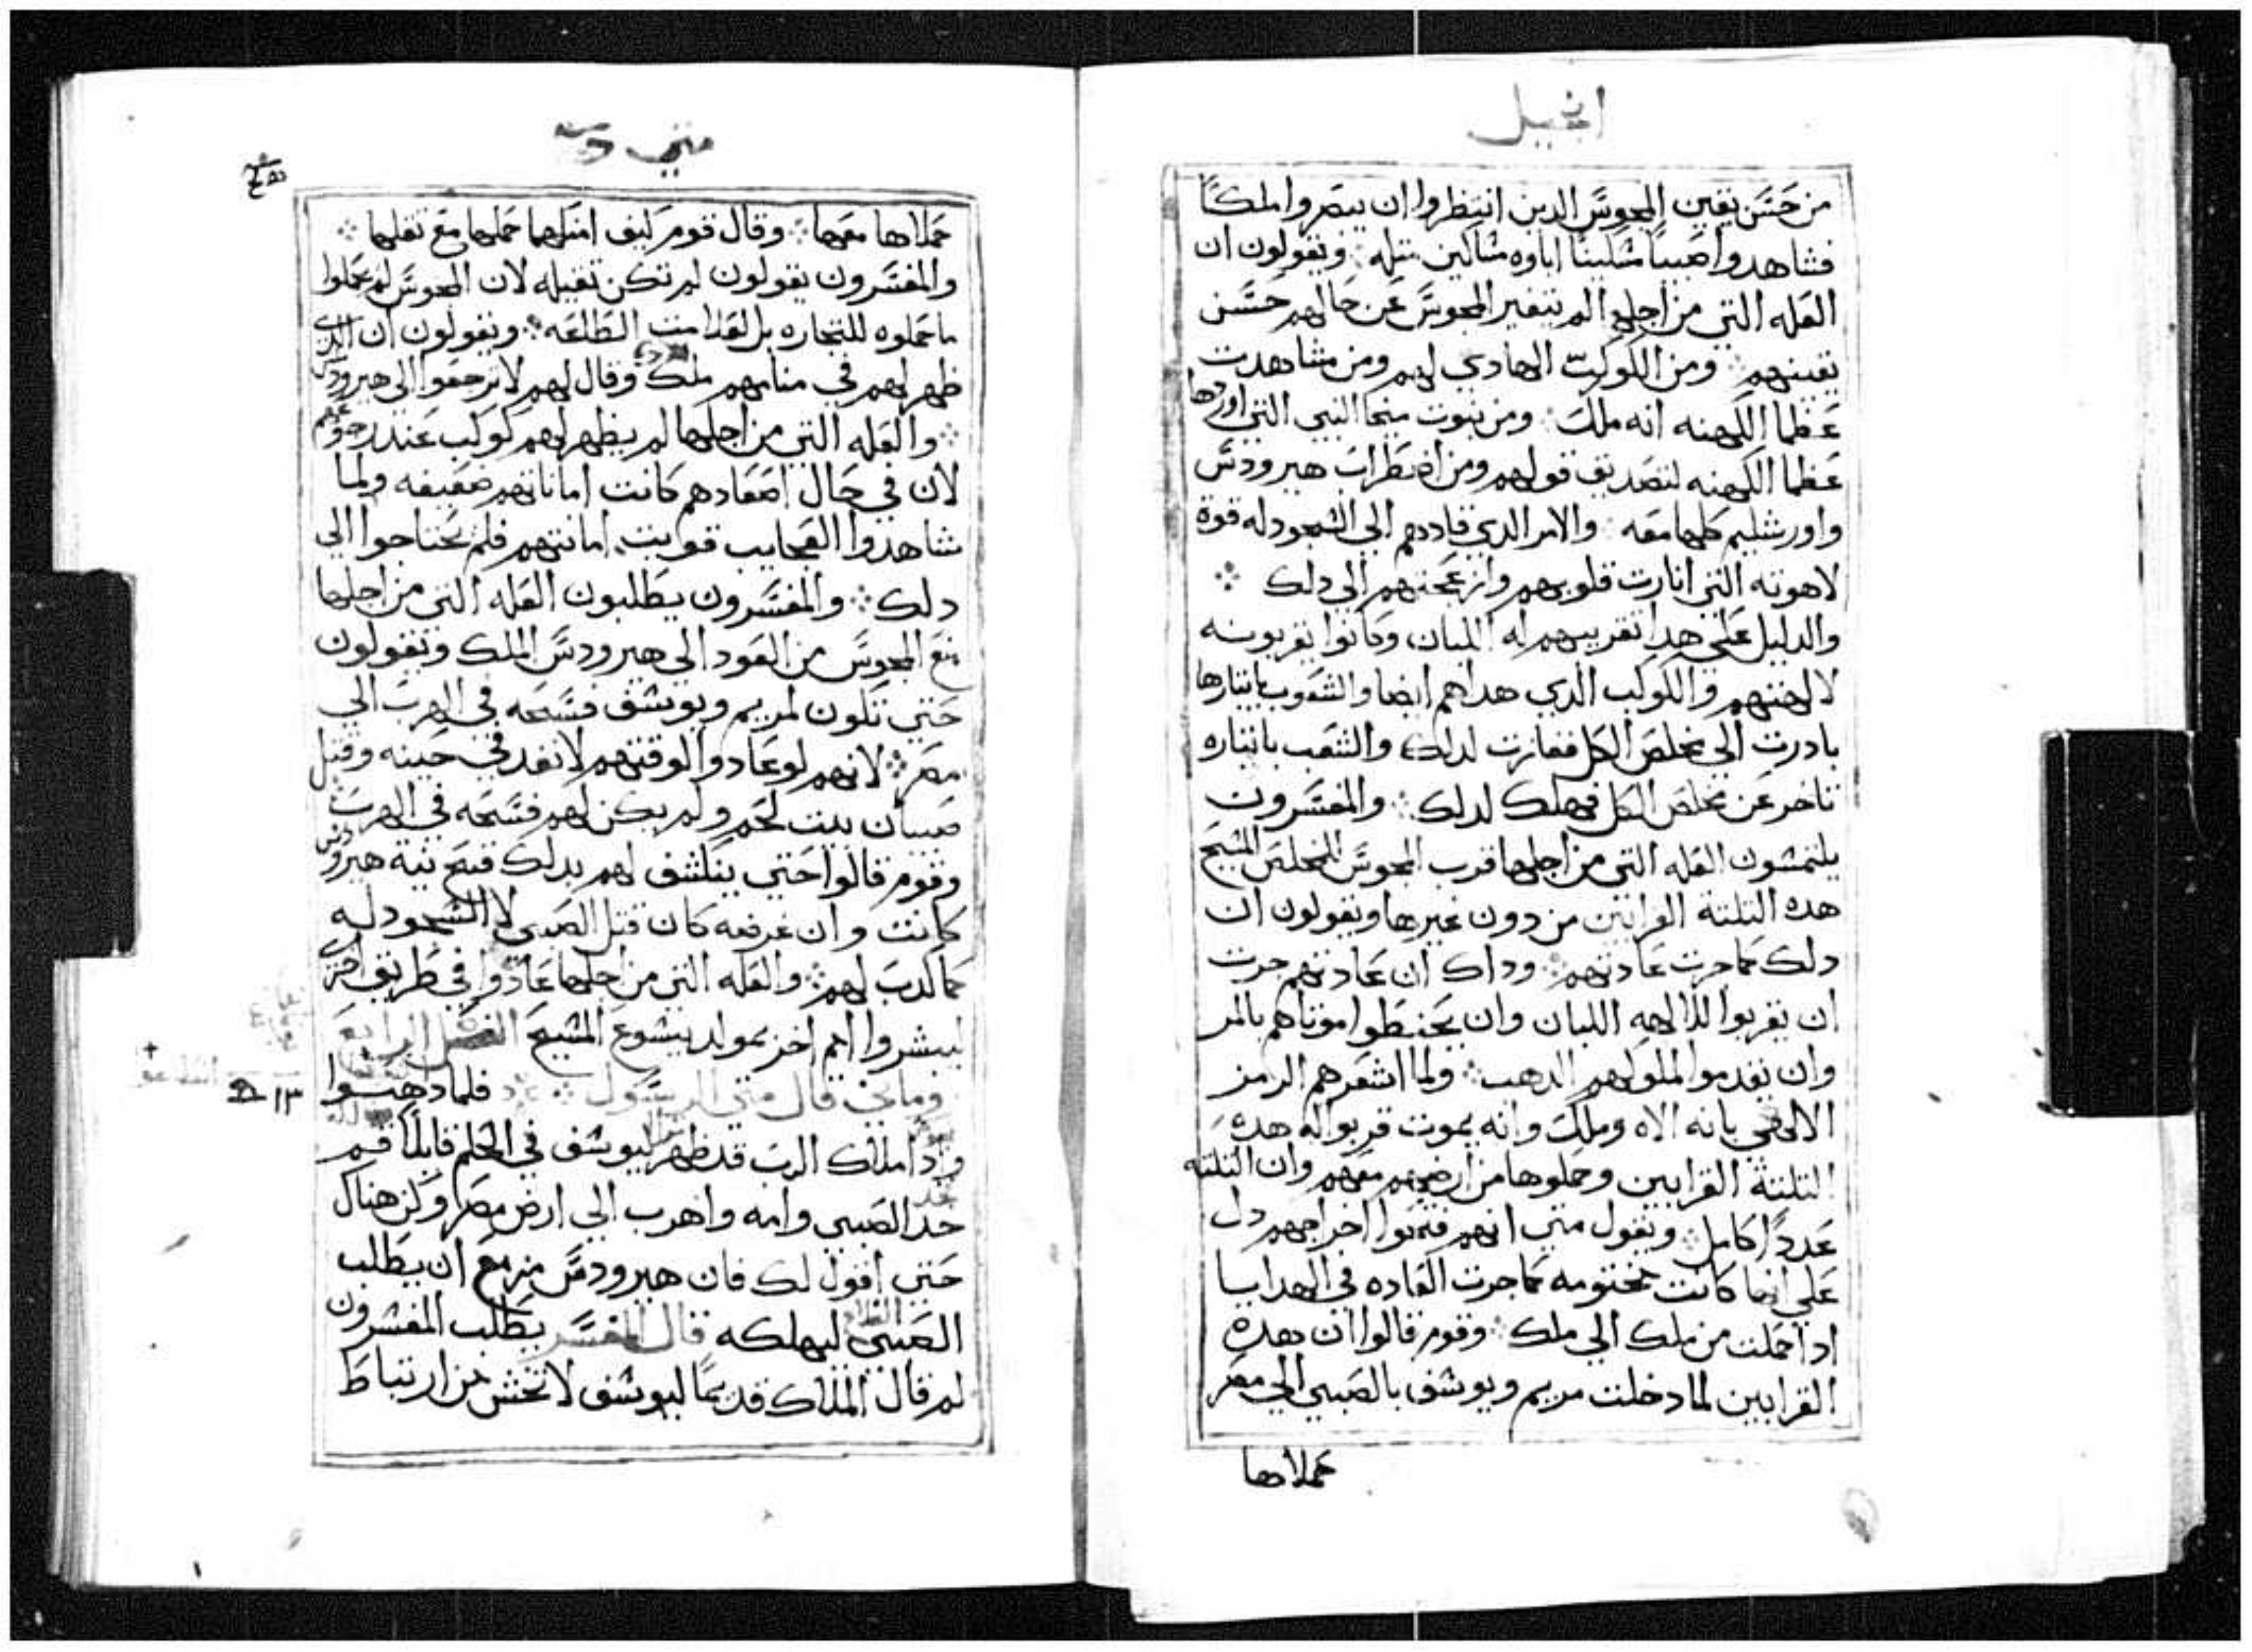 انجيل
من حسن يقين المجوس الدين انتظروا ان يبصروا ملكًا
فشاهدوا صبيًا مسكينًا اباوه مساكين مثله ويقولون ان
العله التي من اجلها لم يتغير المجوس عن حالهم حسن
يقينهم ومن الكوكب الهادي لهم ومن مشاهدت
عظما الكهنه انه ملك ومن نبوت ميخا النبي التي اوردها
عظما الكهنه لتصديق قولهم ومن اضطراب هيرودس
واورشليم كلها معه والامر الدي قادهم الي السجود له قوة
لاهوته التي انارت قلوبهم وازعجتهم الي دلك
والدليل علي هدا تقريبهم له اللبان وكانوا يقربونه
لالهتهم والكوكب الدي هداهم ايضا والشعوب بايتارها
بادرت الي مخلص الكل ففازت لدلك والشعب بايتاره
تاخر عن مخلص الكل فهلك لدلك والمفسرون
يلتمسون العله التي من اجلها قرب المجوس للمخلص المسيح
هده التلتة القرابين من دون غيرها ويقولون ان
دلك كما جرت عادتهم وداك ان عادتهم جرت
ان يقربوا للالهه اللبان وان يحنطوا موتاهم بالمر
وان يقدموا لملوكهم الدهب ولما اشعرهم الرمز
الالاهي بانه الاه وملك وانه يموت قربوا له هده
التلتة القرابين وحملوها من ارضهم معهم وان التلته
عددًا كامل ويقول متي انهم فتحوا اخراجهم دل
علي انها كانت مختومه كما جرت العاده في الهدايا
ادا حملت من ملك الي ملك وقوم قالوا ان هده
القرابين لما دخلت مريم ويوسف بالصبي الي مصر
حملاها
متي
حملاها معها وقال قوم كيف امكنهما حملها مع تقلها
والمفسرون يقولون لم تكن تقيله لان المجوس لم يحملوا
ما حملوه للتجاره بل لعلامت الطاعه ويقولون ان الدي
ظهر لهم في منامهم ملك وقال لهم لا ترجعوا الي هيرودس
والعله التي من اجلها لم يظهر لهم كوكب عند رجوعهم
لان في حال اصعادهم كانت اماناتهم ضعيفه ولما
شاهدوا العجايب قويت امانتهم فلم يحتاجوا الي
دلك والمفسرون يطلبون العله التي من اجلها
منع المجوس من العود الي هيرودس الملك ويقولون
حتي تكون لمريم ويوسف فسحه في الهرب الي
مصر لانهم لو عادوا لوقتهم لانفد في حينه وقتل
صبيان بيت لحم ولم يكن لهم فسحه في الهرب
وقوم قالوا حتي ينكشف لهم بدلك قبح نية هيرودس
كانت وان غرضه كان قتل الصبي لا السجود له
كما كدب لهم والعله التي من اجلها عادوا في طريق اخرى
ليبشروا امم اخر بمولد يسوع المسيح الفصل الرابع
قال متي الرسول فلما دهبوا
وادا ملاك الرب قد ظهر ليوسف في الحلم قايلًا قم
خد الصبي وامه واهرب الي ارض مصر وكن هناك
حتي اقول لك فان هيرودس مزمع ان يطلب
الصبي ليهلكه قال المفسر يطلب المفسرون
لم قال الملاك قديمًا ليوسف لا تخش من ارتباط
١٣